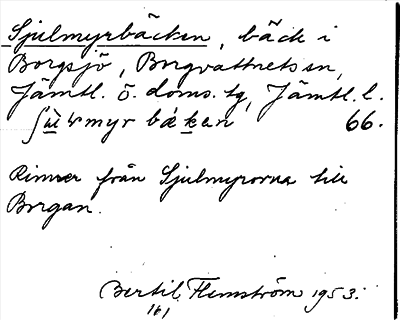 Sjulmyrbäcken, bäck i
Borgsjö, Borgvattnets sn,
Jämtl. ö. doms. tg, Jämtl. l.
myr bäken 66.
Rinner från Sjulmyrorna till
Borgan.
Bertil Flemström 1953.
161